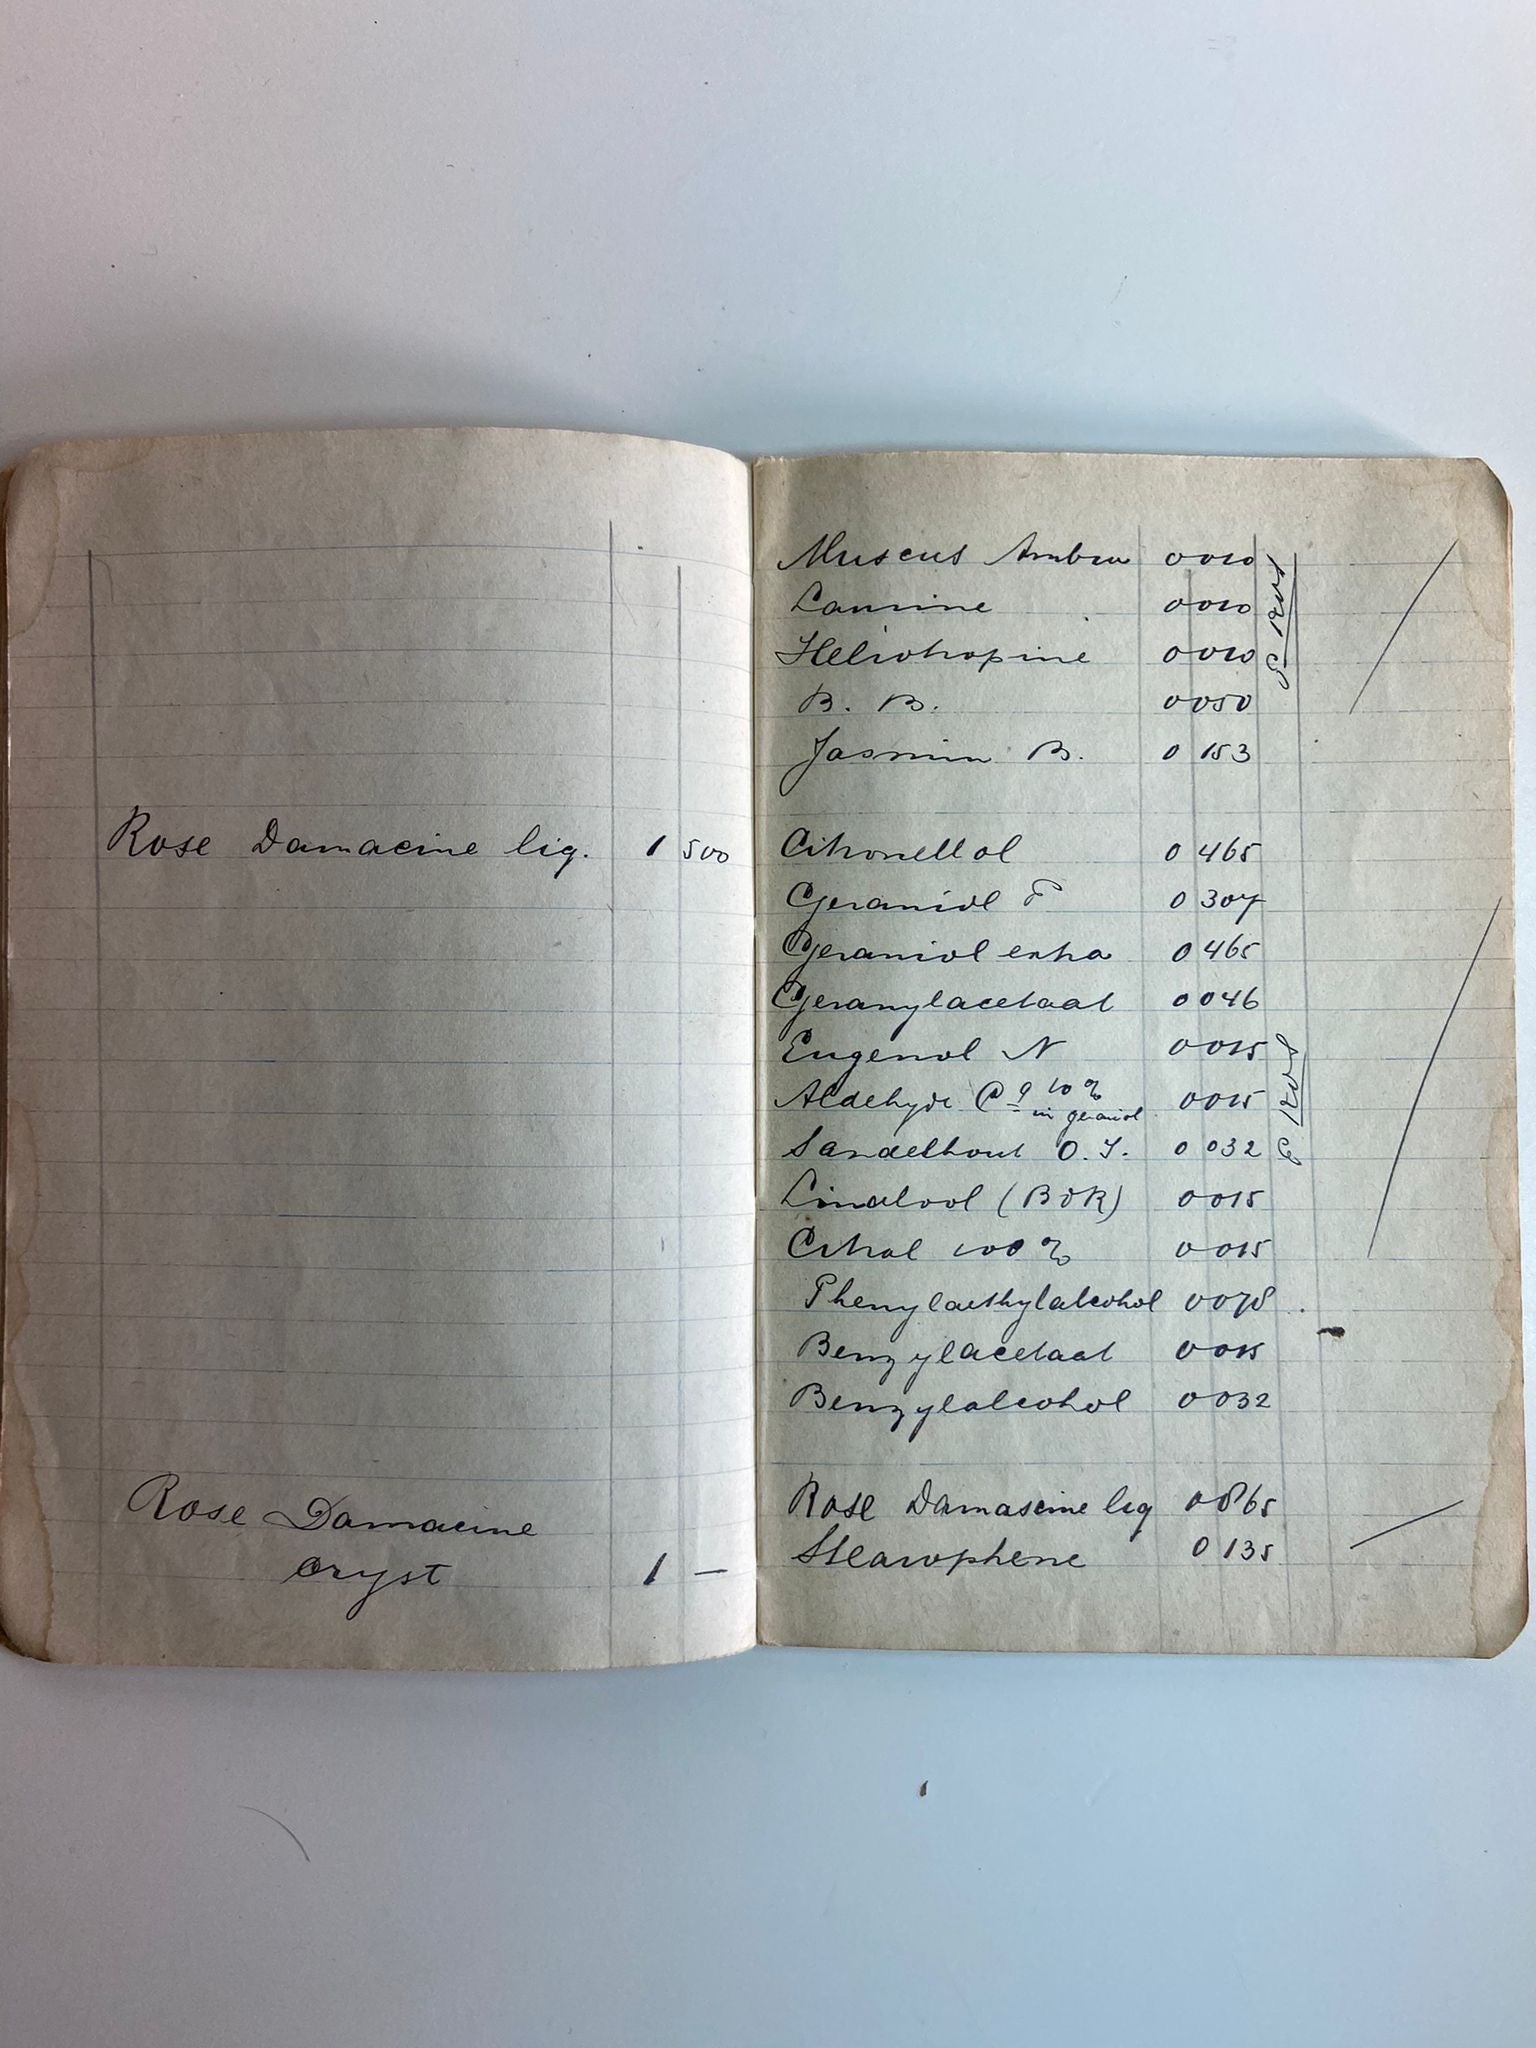 Rose Damacine liq. 1 500
Rose Damacine
cryst 1 —
Muscus Ambra 0 010
Laurine 0 010
Heliotropine 0 010
B. B. 0 050
Jasmin B. 0 153
Citronellol 0 465
Geraniol P 0 307
Geraniol extra 0 465
Geranylacetaat 0 046
Eugenol N 0 015
Aldehyde C 9 10 %
in geraniol 0 015
Sandelhout O.I. 0 032
Linalool (BOR) 0 015
Citral 100 % 0 015
Phenylaethylalcohol 0 078
Benzylacetaat 0 015
Benzylalcohol 0 032
Rose Damascine liq 0 865
Stearophene 0 135